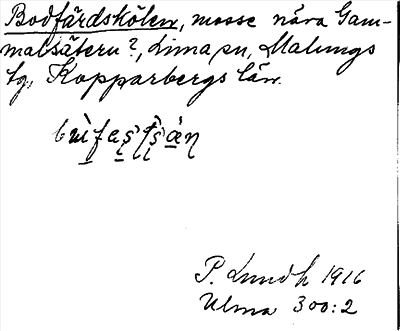 Bodfärdskölen, mosse nära Gam-
malsätern?, Lima sn, Malungs
tg, Kopparbergs län.
P. Lundh 1916
Ulma 300:2